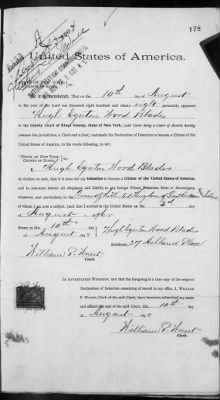 178
United States of America.
STATE OF NEW YORK,
Be it Remembered, That on the 10th day of August
in the year of the Lord one thousand eight hundred and ninety eight personally appeared
Hugh Egerton Wood Blades
in the County Court of Kings County, State of New York, (said Court being a Court of Record, having
common law jurisdiction, a Clerk and a Seal), and made his Declaration of Intention to become a Citizen of the
United States of America, in the words following, to wit:
STATE OF NEW YORK,
County of Kings,
I, Hugh Egerton Wood Blades
do declare on oath, that it is bona fide my intention to become a Citizen of the United States of America,
and to renounce forever all allegiance and fidelity to any foreign Prince, Potentate, State or Sovereignty
whatever, and particularly to the Queen of the United Kingdom of Great Britain and Ireland
of whom I am now a subject, and that I arrived in the United States on the 2nd day of
August
Sworn to this 10th day of Hugh Egerton Wood Blades
August Residence,
William P. Wuest
Clerk.
In attestation Whereof, and that the foregoing is a true copy of the original
Declaration of Intention remaining of record in my office, I, WILLIAM
P. WUEST, Clerk of the said Court, have hereunto subscribed my name
and affixed the seal of said Court, this 10th day of
August
William P. Wuest
Clerk.